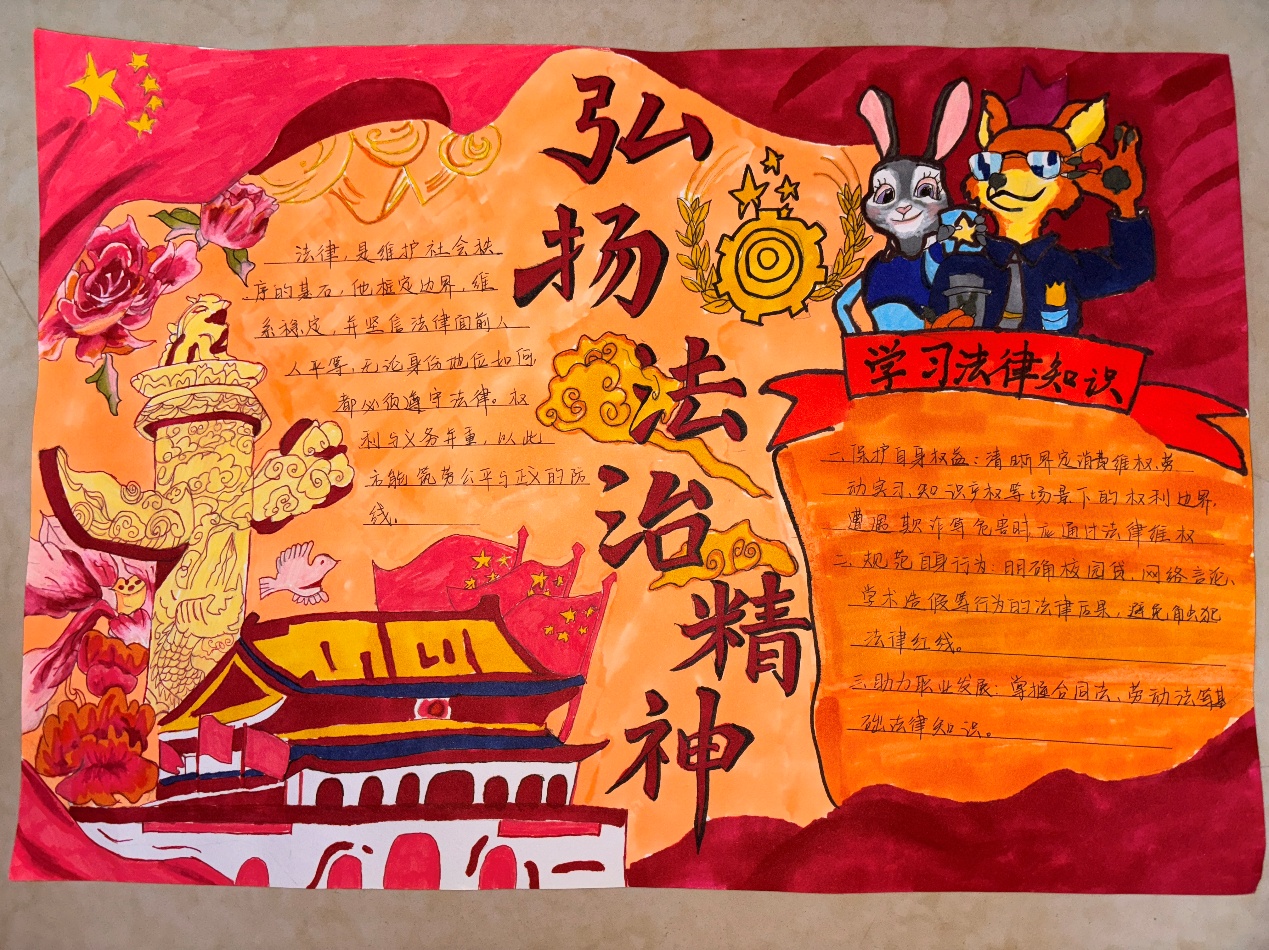 弘扬法治精神
法律,是维护社会秩
序的基石,他框定边界,维
系稳定,并坚信法律面前人
人平等,无论身份地位如何
都必须遵守法律。权
利与义务并重,以此
方能筑劳公平与正义的防
线。
学习法律知识
一.保护自身权益:清晰界定消费维权、劳
动实习、知识产权等场景下的权利边界,
遭遇欺诈等危害时,应通过法律维权
二.规范自身行为:明确校园贷、网络言论、
学术造假等行为的法律后果,避免自己犯
法律红线。
三.助力职业发展:掌握合同法、劳动法等基
础法律知识。